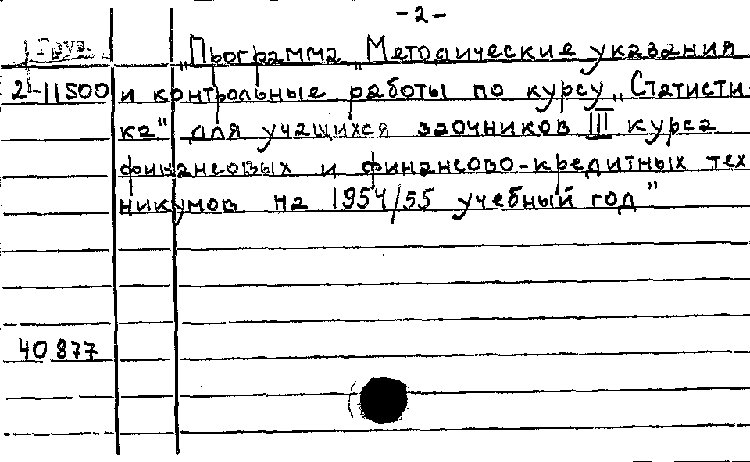 -2-
„Программа „Методические указания
2-11500 и контрольные работы по курсу „Статисти-
ка" для учащихся заочников III курса
финансовых и финансово-кредитных тех
никумов на 1954/55 учебный год"
40877